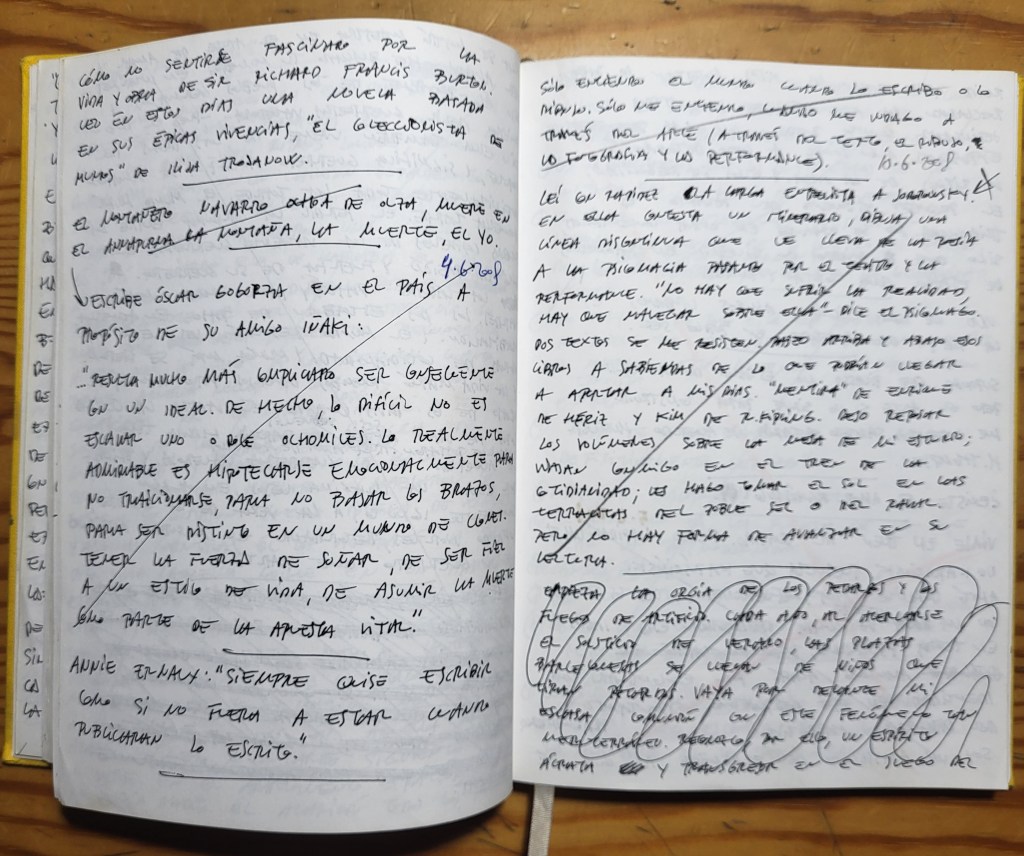 CÓMO NO SENTIRSE FASCINADO POR LA
VIDA Y OBRA DE SIR RICHARD FRANCIS BURTON.
LEO EN ESTOS DÍAS UNA NOVELA BASADA
EN SUS ÉPICAS VIVENCIAS, "EL COLECCIONISTA DE
MUNDOS" DE ILIJA TROJANOW.
EL MONTAÑERO NAVARRO OCHOA DE OLZA, MUERE EN
EL ANNAPURNA. LA MONTAÑA, LA MUERTE, EL YO.
9.6.2008
ESCRIBE ÓSCAR GOGORZA EN EL PAÍS A
PROPÓSITO DE SU AMIGO IÑAKI:
"RESULTA MUCHO MÁS COMPLICADO SER CONSECUENTE
CON UN IDEAL. DE HECHO, LO DIFÍCIL NO ES
ESCALAR UNO O DOCE OCHOMILES. LO REALMENTE
ADMIRABLE ES HIPOTECARSE EMOCIONALMENTE PARA
NO TRAICIONARSE, PARA NO BAJAR LOS BRAZOS,
PARA SER DISTINTO EN UN MUNDO DE CLONES.
TENER LA FUERZA DE SOÑAR, DE SER FIEL
A UN ESTILO DE VIDA, DE ASUMIR LA MUERTE
COMO PARTE DE LA APUESTA VITAL."
ANNIE ERNAUX: "SIEMPRE QUISE ESCRIBIR
COMO SI NO FUERA A ESTAR CUANDO
PUBLICARAN LO ESCRITO."
SÓLO ENTIENDO EL MUNDO CUANDO LO ESCRIBO O LO
DIBUJO. SÓLO ME ENTIENDO, CUANDO ME INDAGO A
TRAVÉS DEL ARTE (A TRAVÉS DEL TEXTO, EL DIBUJO,
LA FOTOGRAFÍA Y LA PERFORMANCE).
10.6.2008
LEÍ CON RAPIDEZ LA LARGA ENTREVISTA A JODOROWSKY.
EN ELLA CONTESTA UN ITINERARIO, DIBUJA UNA
LÍNEA DISCONTINUA QUE LE LLEVA DE LA POESÍA
A LA PSICOMAGIA PASANDO POR EL TEATRO Y LA
PERFORMANCE. "NO HAY QUE SUFRIR LA REALIDAD,
HAY QUE NAVEGAR SOBRE ELLA" - DICE EL PSICOMAGO.
DOS TEXTOS SE ME RESISTEN. PASEO ARRIBA Y ABAJO ESOS
LIBROS A SABIENDAS DE LO QUE PODRÍAN LLEGAR
A APORTAR A MIS DÍAS. "MENTIRA" DE ENRIQUE
DE HÉRIZ Y KIM DE R. KIPLING. DEJO REPOSAR
LOS VOLÚMENES SOBRE LA MESA DE MI ESTUDIO;
VIAJAN CONMIGO EN EL TREN DE LA
COTIDIANIDAD; LES HAGO TOMAR EL SOL EN LAS
TERRACITAS DEL POBLE SEC O DEL RAVAL.
PERO NO HAY FORMA DE AVANZAR EN SU
LECTURA.
EMPIEZA LA ORGÍA DE LOS PETARDOS Y LOS
FUEGOS DE ARTIFICIO. CADA AÑO, AL ACERCARSE
EL SOLSTICIO DE VERANO, LAS PLAZAS
BARCELONESAS SE LLENAN DE NIÑOS QUE
TIRAN PETARDOS. VAYA POR DELANTE MI
ESCASA COMUNIÓN CON ESTE FENÓMENO TAN
MEDITERRÁNEO. RECONOZCO, POR ELLO, UN ESPÍRITU
ÁCRATA Y TRANSGRESOR EN EL JUEGO DEL